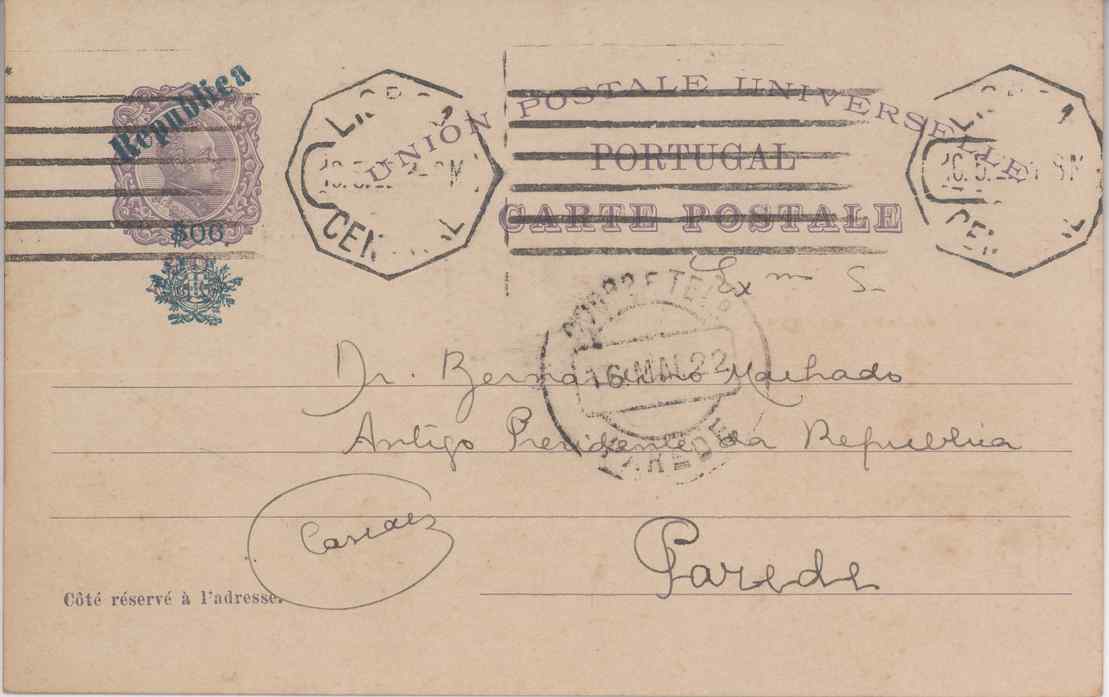 Republica
$06
UNION POSTALE UNIVERSELLE
PORTUGAL
CARTE POSTALE
CENTRAL
Exmo Sr
CORR. E TEL.
16 MAI 22
PAREDE
Dr. Bernardino Machado
Antigo Presidente da Republica
Cascaes
Parede
Côté réservé à l'adresse.